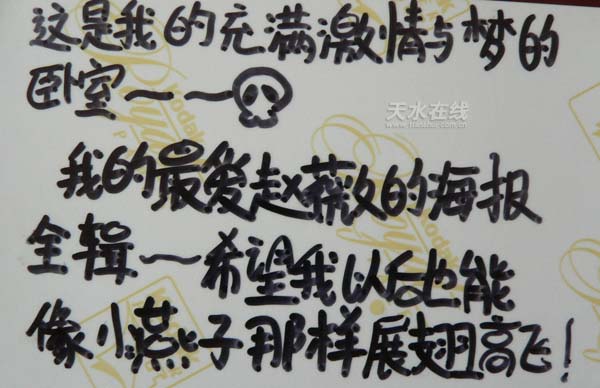 这是我的充满激情与梦的
卧室～～
天水在线
我的最爱赵薇的海报
全辑～希望我以后也能
像小燕子那样展翅高飞！